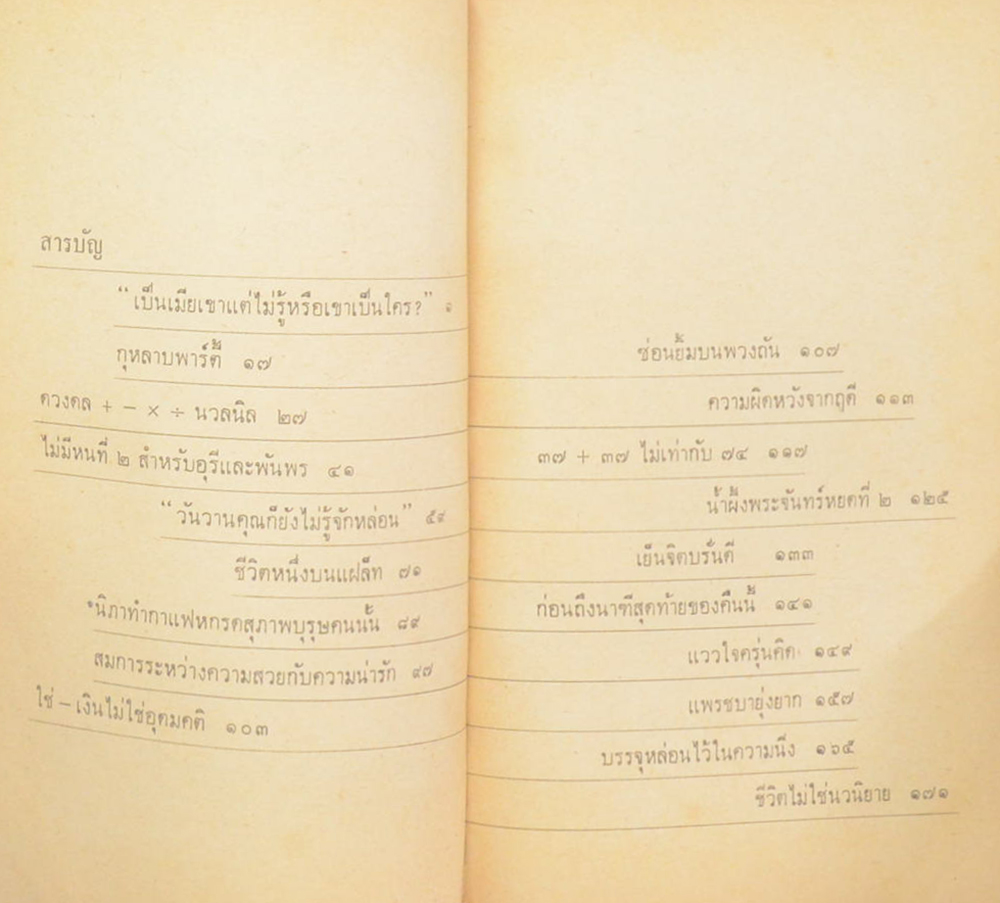 สารบัญ
“เป็นเมียเขาแต่ไม่รู้หรือเขาเป็นใคร?” ๑
กุหลาบพาร์ตี้ ๑๗
ควงคล + − × ÷ นวลนิล ๒๗
ไม่มีหนที่ ๒ สำหรับอุรีและพันพร ๔๑
“วันวานคุณก็ยังไม่รู้จักหล่อน” ๕๙
ชีวิตหนึ่งบนแฝล็ท ๗๑
นิภาทำกาแฟหกรดสุภาพบุรุษคนนั้น ๘๙
สมการระหว่างความสวยกับความน่ารัก ๙๗
ใช่ − เงินไม่ใช่อุดมคติ ๑๐๓
ซ่อนยิ้มบนพวงถัน ๑๐๗
ความผิดหวังจากฤดี ๑๑๓
๓๗ + ๓๗ ไม่เท่ากับ ๗๔ ๑๑๗
น้ำผึ้งพระจันทร์หยดที่ ๒ ๑๒๕
เย็นจิตบรั่นดี ๑๓๓
ก่อนถึงนาฑีสุดท้ายของคืนนี้ ๑๔๑
แววใจครุ่นคิด ๑๔๙
แพรชบายุ่งยาก ๑๕๗
บรรจุหล่อนไว้ในความนึง ๑๖๕
ชีวิตไม่ใช่นวนิยาย ๑๗๑